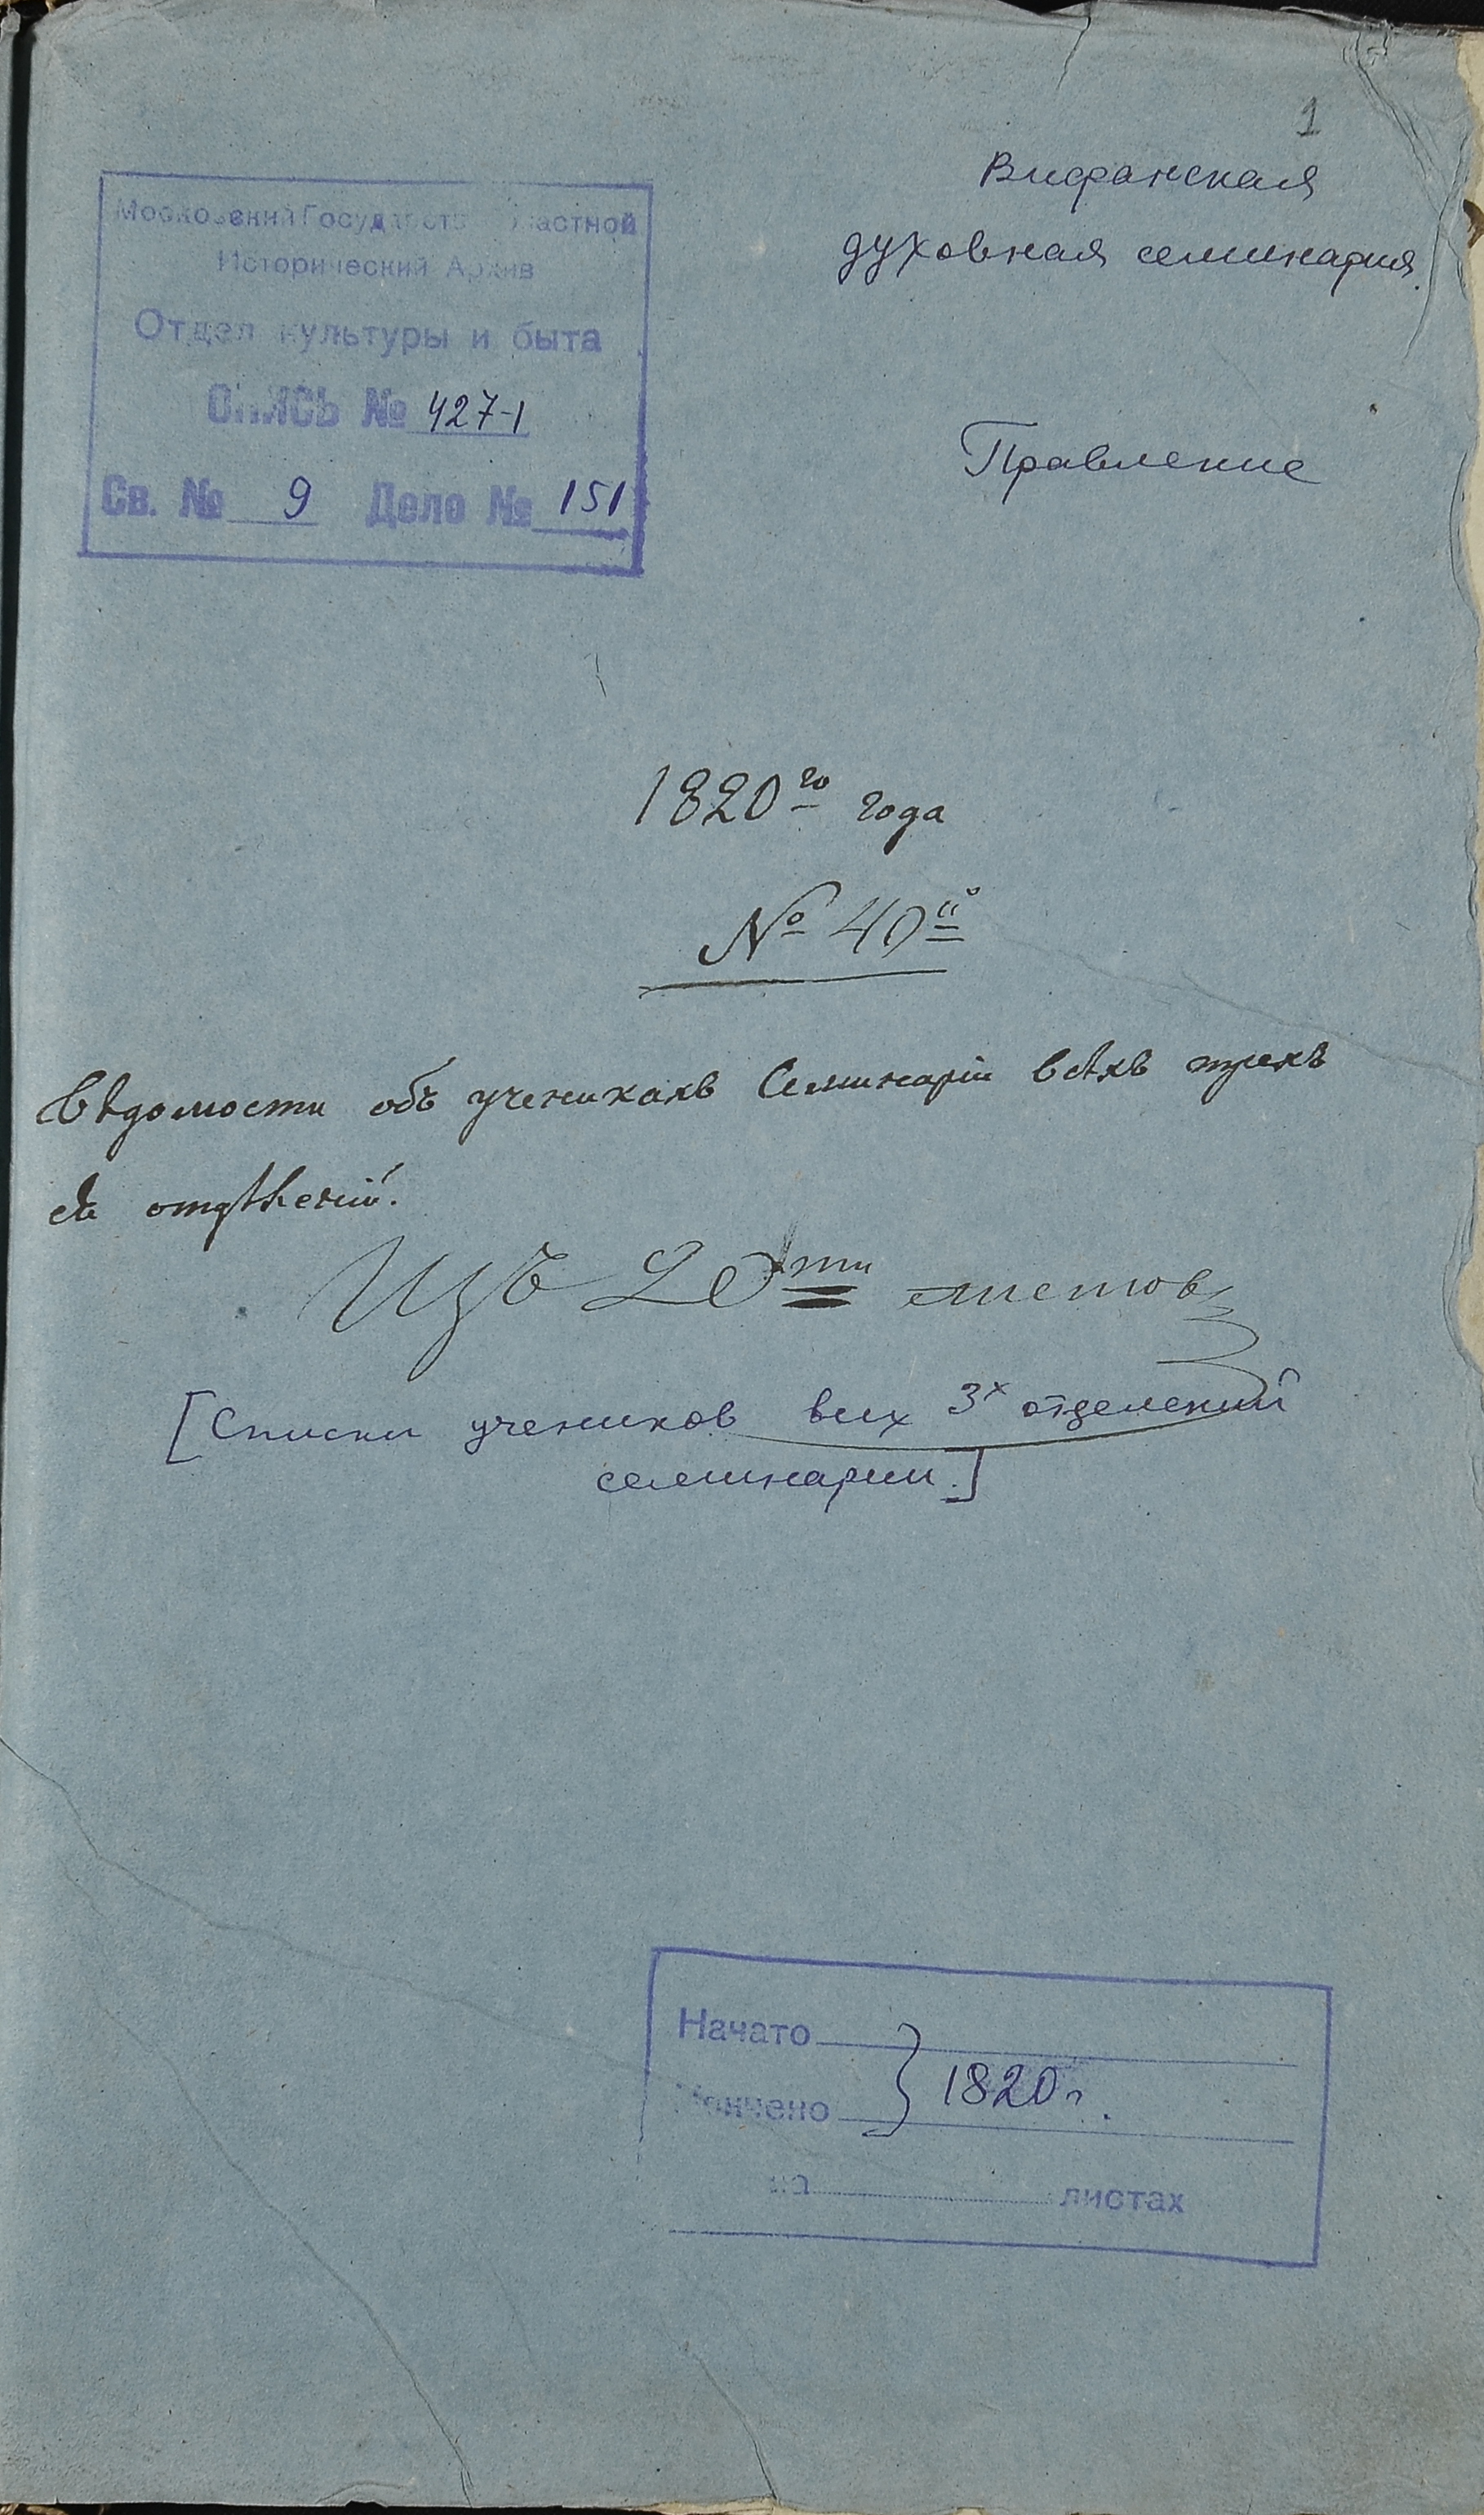 1
Вифанская
духовная семинария
Правление
Московский Государств Областной
Исторический Архив
Отдел культуры и быта
Опись № 427-1
Св. № 9 Дело № 151
1820го года
№ 40й
Вѣдомости объ ученикахъ Семинаріи всѣхъ трехъ
ея отдѣленій.
Изъ 20ти листовъ
[Списки учеников всех 3х отделений
семинарии.]
Начато
Кончено } 1820 г.
на листах